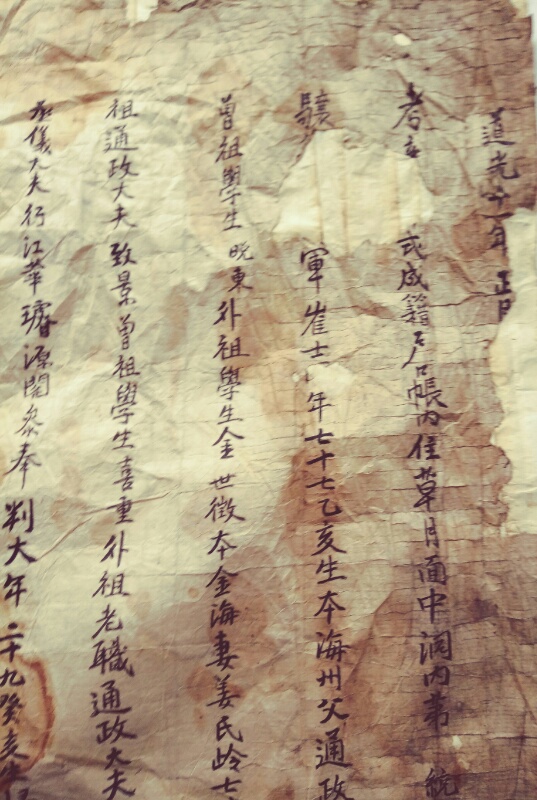 道光十一年 正月
考 式成籍戶帳內住草月面中洞內第 統
驍 軍崔士 年七十七乙亥生本海州父通政
曾祖學生 晩東 外祖學生金 世徵本金海妻姜氏齡七
祖通政大夫 致景曾祖學生喜重外祖老職通政大夫
承儀大夫行江華 源閣參奉 判大年 二十九癸亥生